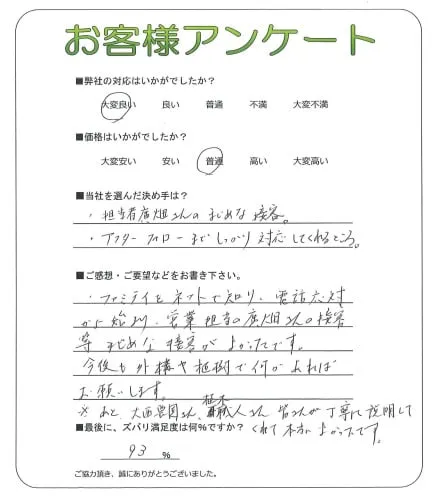 お客様アンケート
■弊社の対応はいかがでしたか？
大変良い 良い 普通 不満 大変不満
■価格はいかがでしたか？
大変安い 安い 普通 高い 大変高い
■当社を選んだ決め手は？
・担当者廣畑さんのまじめな接客。
・アフターフォローまでしっかり対応してくれるところ。
■ご感想・ご要望などをお書き下さい。
・ファミテイをネットで知り、電話応対
から始まり、営業担当の廣畑さんの接客
等まじめな接客がよかったです。
今後も外構や植樹で何かあれば
お願いします。
※あと、大西農園さん、植木職人さん皆さんが丁寧に説明して
くれて本当によかったです。
■最後に、ズバリ満足度は何%ですか？
93 %
ご協力頂き、誠にありがとうございました。